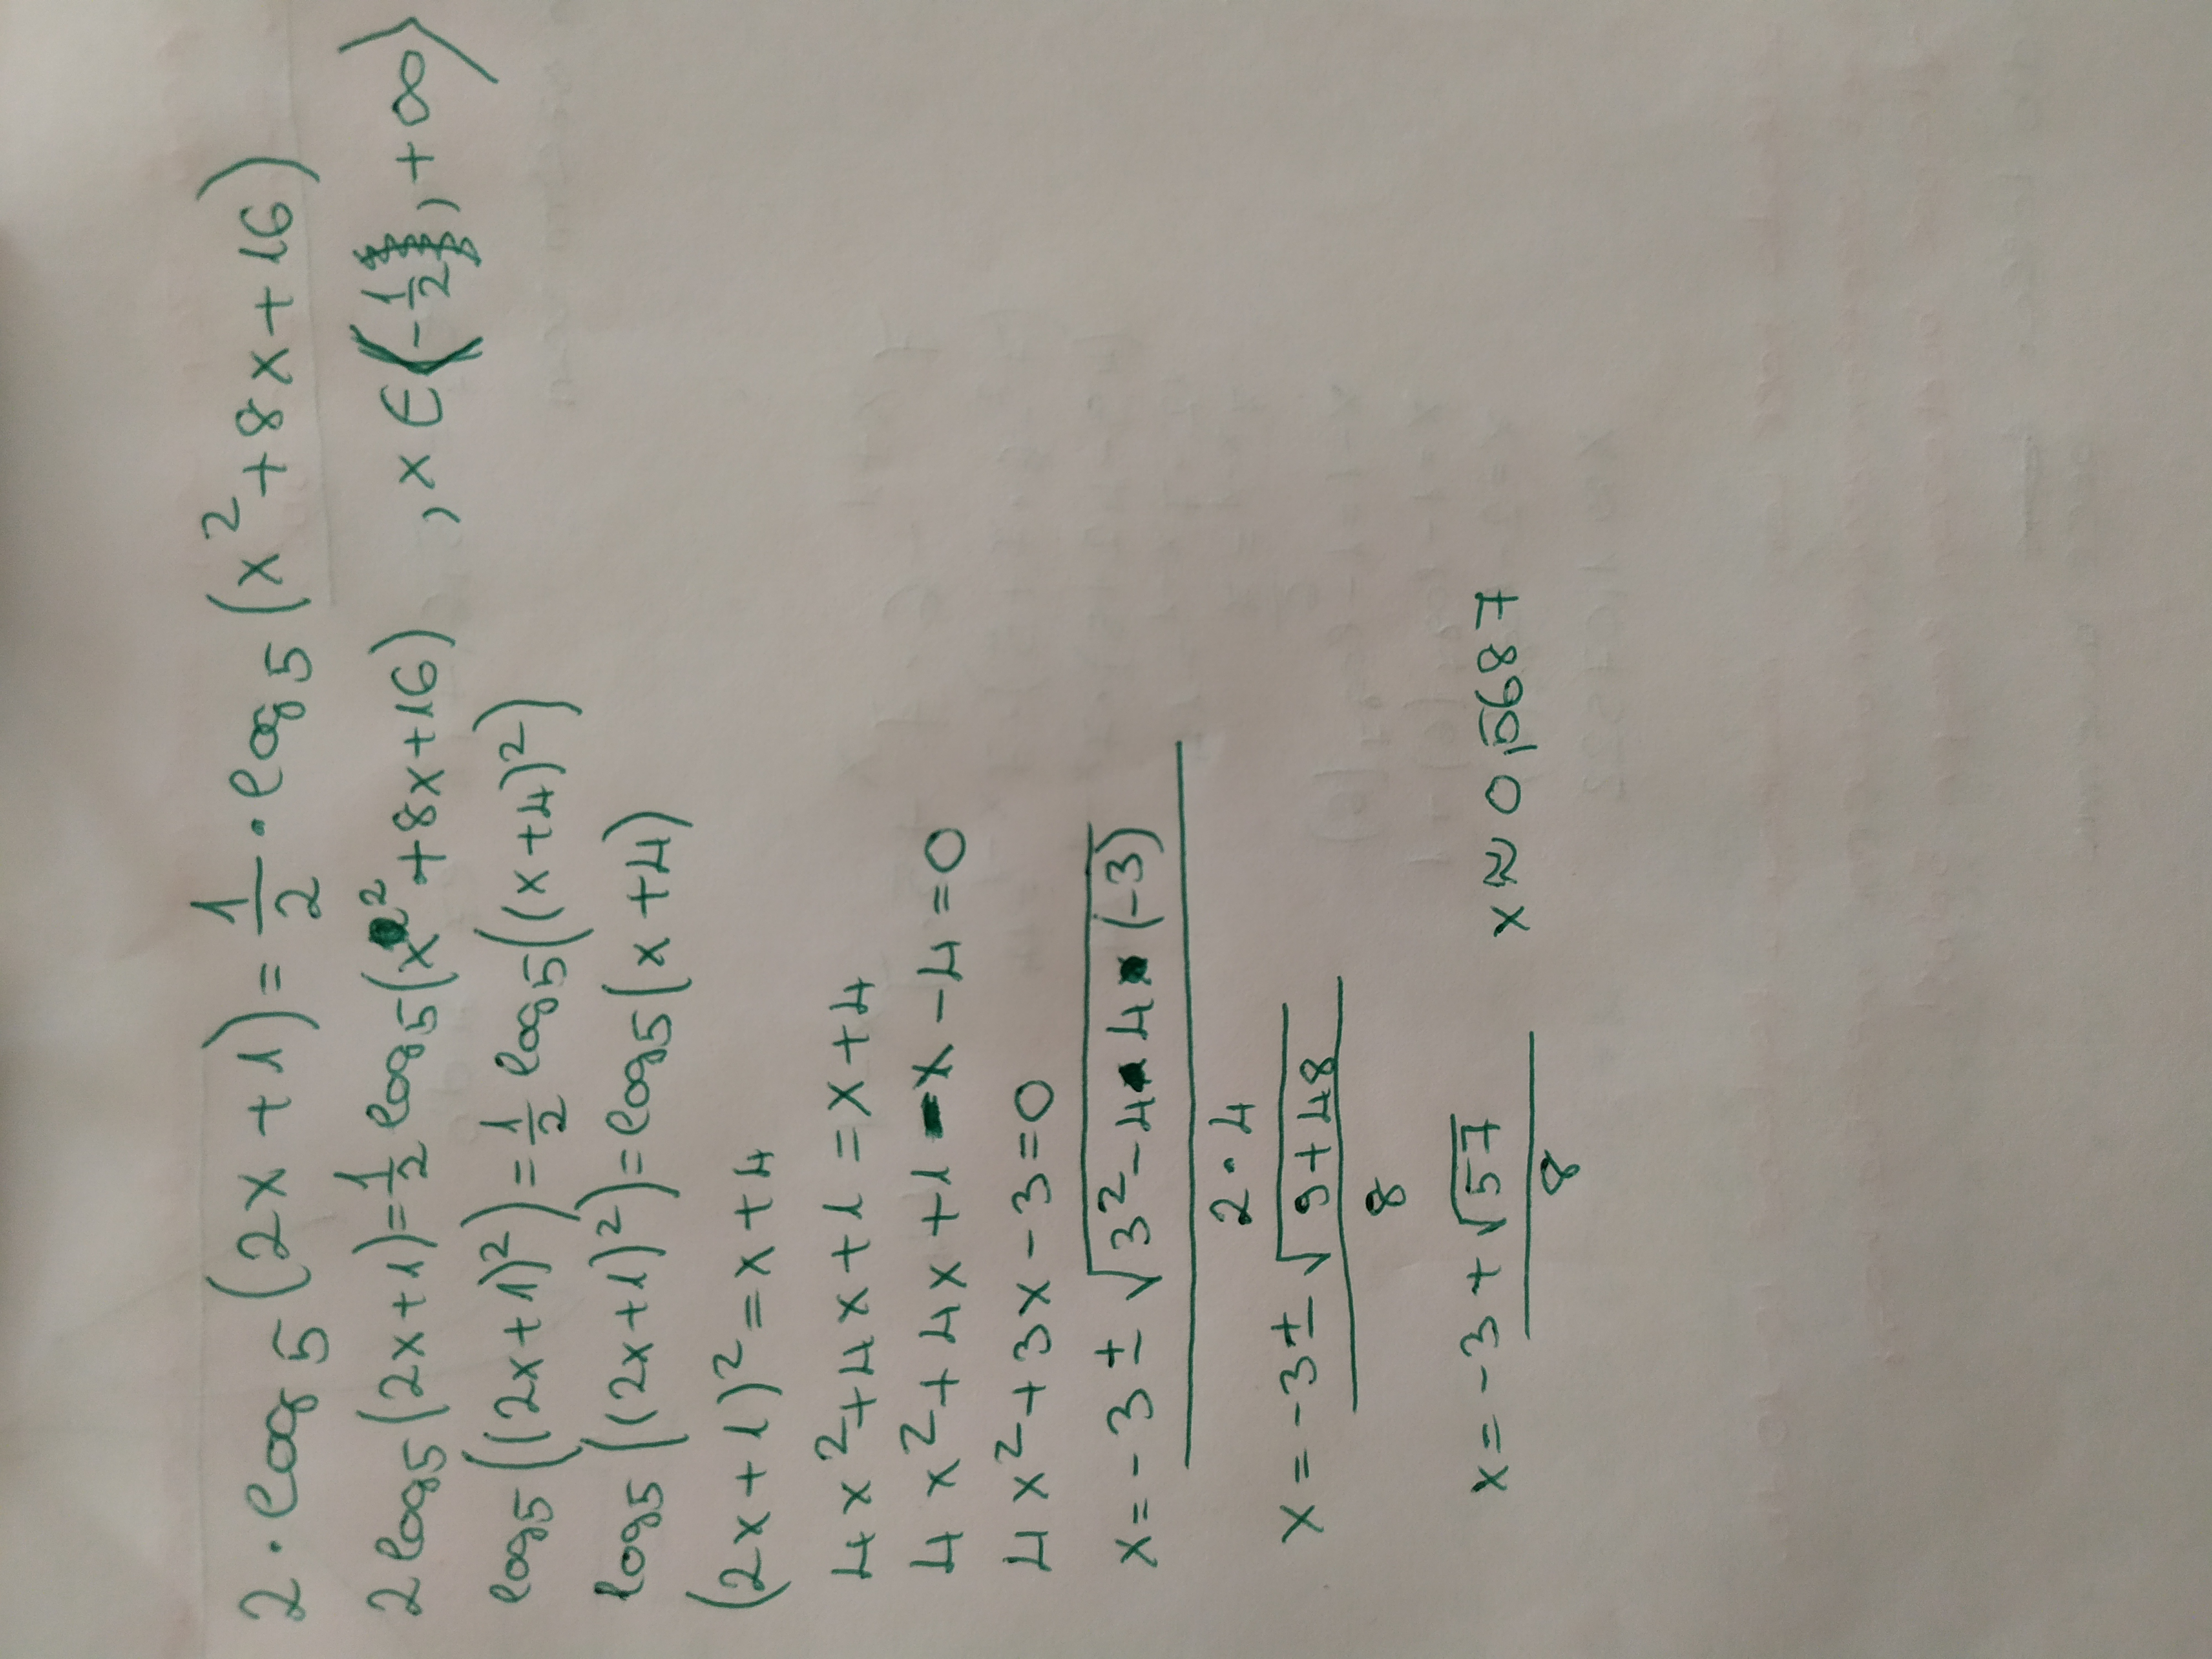 2·log5(2x+1)=1/2·log5(x²+8x+16)
2log5(2x+1)=1/2 log5(x²+8x+16), x∈(-1/2, +∞⟩
log5((2x+1)²)=1/2 log5((x+4)²)
log5((2x+1)²)=log5(x+4)
(2x+1)²=x+4
4x²+4x+1=x+4
4x²+4x+1-x-4=0
4x²+3x-3=0
x=-3±√(3²-4·4·(-3))/2·4
x=-3±√(9+48)/8
x=-3+√57/8 x≈0,5687